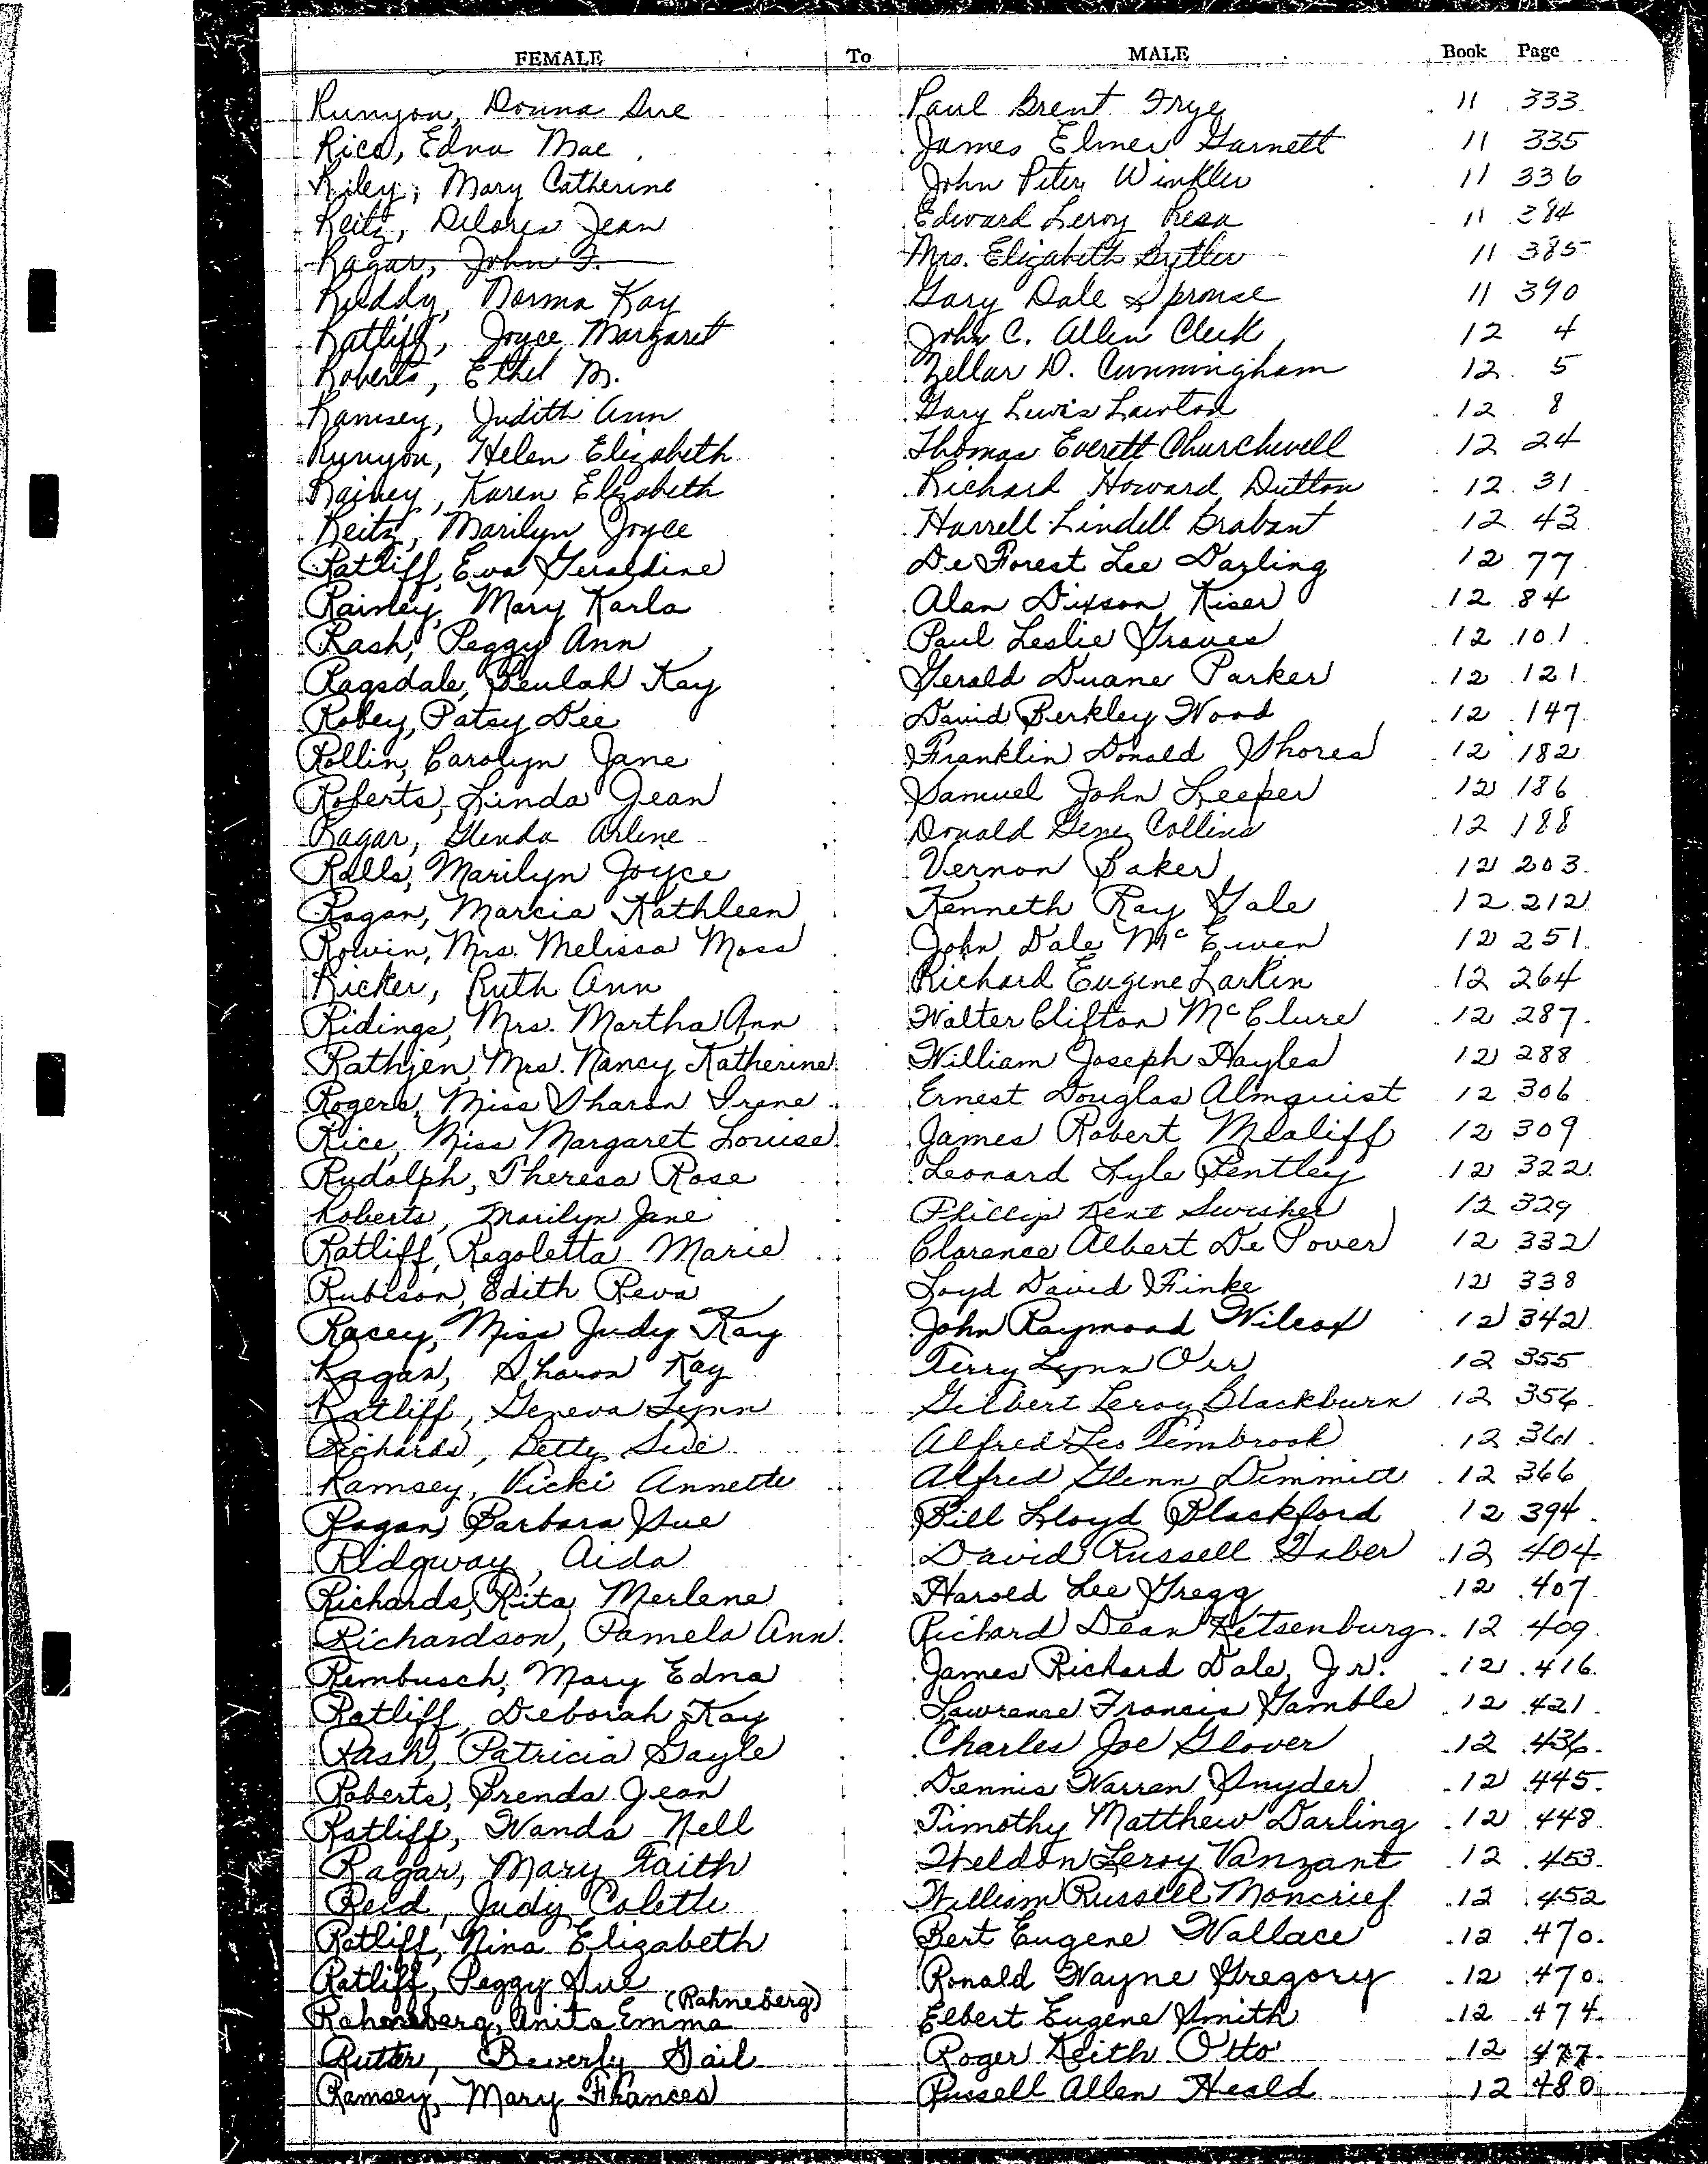 FEMALE To MALE Book Page
Runyon, Donna Sue Paul Brent Frye 11 333
Rice, Edna Mae James Elmer Garnett 11 335
Riley, Mary Catherine John Peter Winkler 11 336
Reitz, Delores Jean Edward Leroy Resa 11 384
Ragar, John F. Mrs. Elizabeth Butler 11 385
Ruddy, Norma Kay Gary Dale Sprouse 11 390
Ratliff, Joyce Margaret John C. Allen Cleek 12 4
Roberts, Ethel M. Zellar D. Cunningham 12 5
Ramsey, Judith Ann Gary Lewis Lawton 12 8
Runyon, Helen Elizabeth Thomas Everett Churchwell 12 24
Rainey, Karen Elizabeth Richard Howard Dutton 12 31
Reitz, Marilyn Joyce Harrell Lindell Brabant 12 43
Ratliff, Eva Geraldine De Forest Lee Darling 12 77
Rainey, Mary Karla Alan Dixson Kiser 12 84
Rash, Peggy Ann Paul Leslie Graves 12 101
Ragsdale, Beulah Kay Gerald Duane Parker 12 121
Robey, Patsy Dee David Berkley Wood 12 147
Rollin, Carolyn Jane Franklin Donald Shores 12 182
Roberts, Linda Jean Samuel John Leeper 12 186
Ragar, Glenda Arlene Donald Gene Collins 12 188
Ralls, Marilyn Joyce Vernon Baker 12 203
Ragan, Marcia Kathleen Kenneth Ray Gale 12 212
Rowin, Mrs. Melissa Moss John Dale McEwen 12 251
Ricker, Ruth Ann Richard Eugene Larkin 12 264
Ridings, Mrs. Martha Ann Walter Clifton McClure 12 287
Rathjen, Mrs. Nancy Katherine William Joseph Hayles 12 288
Rogers, Miss Sharon Irene Ernest Douglas Almquist 12 306
Rice, Miss Margaret Louise James Robert Mealiff 12 309
Rudolph, Theresa Rose Leonard Lyle Pentley 12 322
Roberts, Marilyn Jane Phillip Kent Swisher 12 329
Ratliff, Regoletta Marie Clarence Albert De Pover 12 332
Rubison, Edith Reva Loyd David Finke 12 338
Racey, Miss Judy Kay John Raymond Wilcox 12 342
Ragan, Sharon Kay Terry Lynn Orr 12 355
Ratliff, Geneva Lynn Gilbert Leroy Blackburn 12 356
Richards, Betty Sue Alfred Leo Tembrook 12 361
Ramsey, Vicki Annette Alfred Glenn Dimmitt 12 366
Ragan, Barbara Sue Bill Lloyd Blackford 12 394
Ridgway, Aida David Russell Faber 12 404
Richards, Rita Merlene Harold Lee Gregg 12 407
Richardson, Pamela Ann Richard Dean Ketsenburg 12 409
Rembusch, Mary Edna James Richard Dale, Jr. 12 416
Ratliff, Deborah Kay Lawrence Francis Gamble 12 421
Rash, Patricia Gayle Charles Joe Glover 12 436
Roberts, Brenda Jean Dennis Warren Snyder 12 445
Ratliff, Wanda Nell Timothy Matthew Darling 12 448
Ragar, Mary Faith Sheldon Leroy Vanzant 12 453
Reid, Judy Colette William Russell Moncrief 12 452
Ratliff, Nina Elizabeth Bert Eugene Wallace 12 470
Ratliff, Peggy Sue Ronald Wayne Gregory 12 470
(Rahneberg)
Rahneberg, Anita Emma Elbert Eugene Smith 12 474
Rutter, Beverly Gail Roger Keith Otto 12 477
Ramsey, Mary Frances Russell Allen Heald 12 480